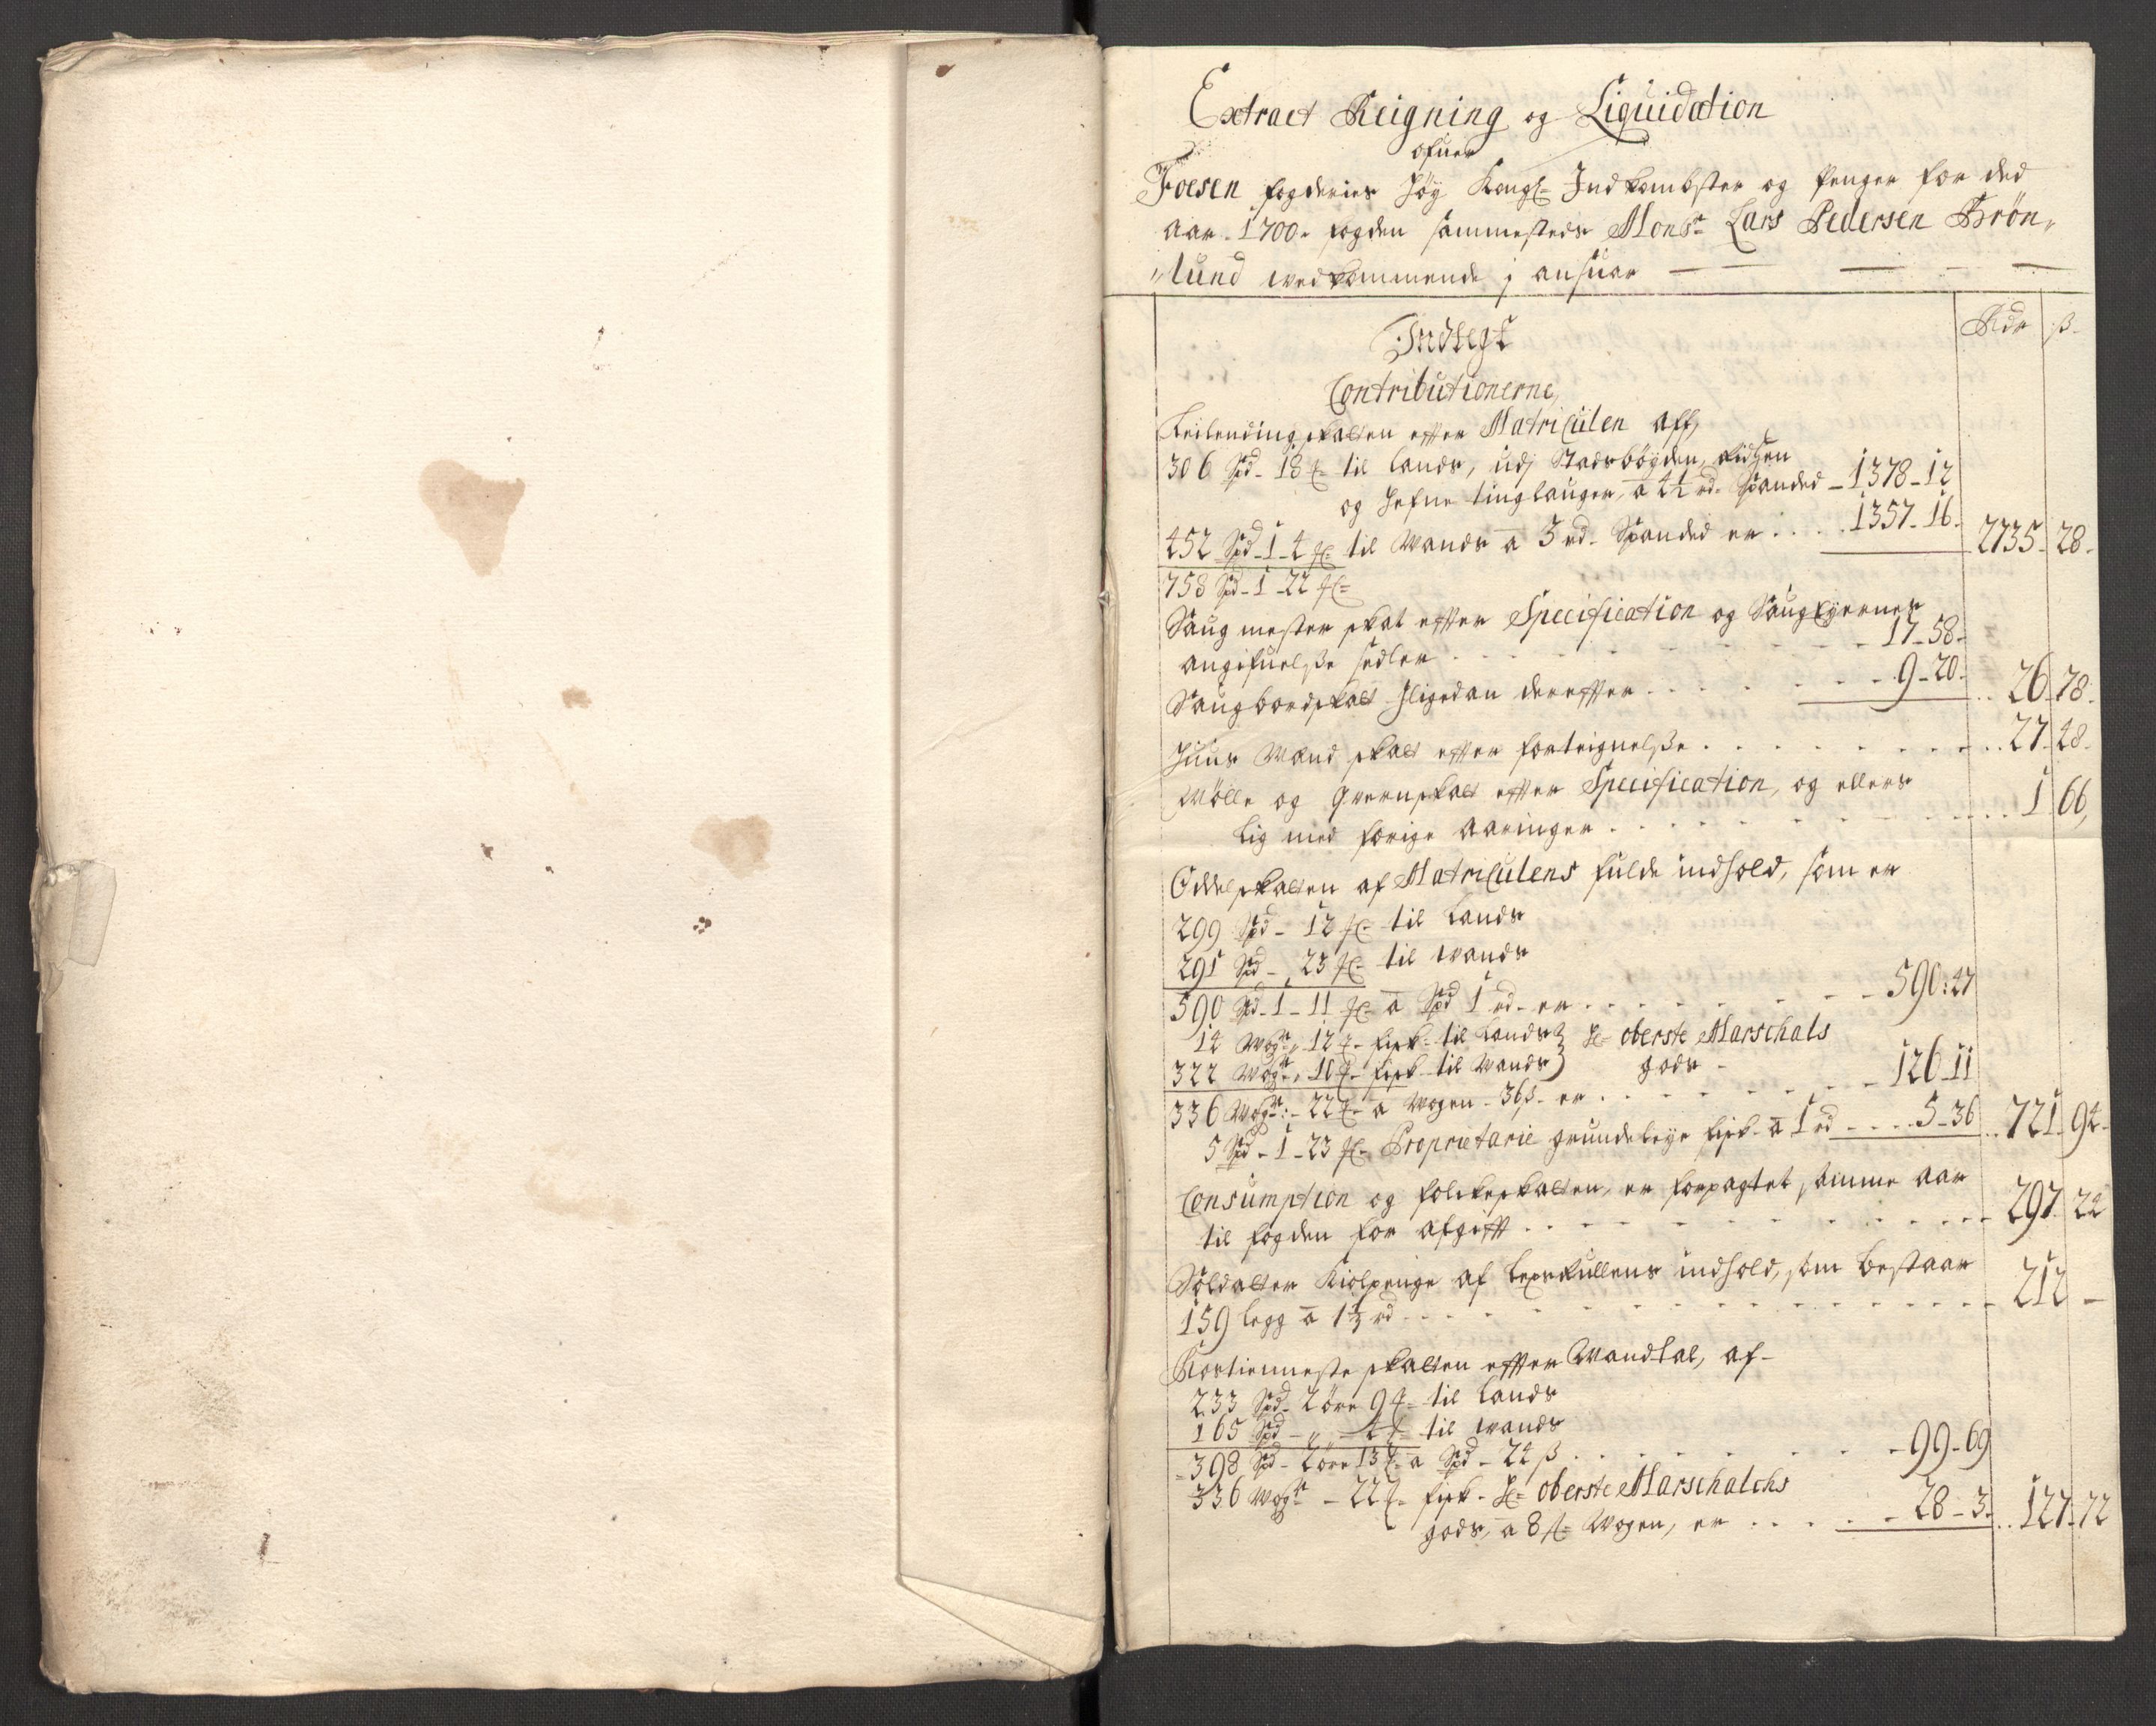 Extract Reigning og Liquidation
ofuer
Foesen fogderies höy Kongl- Indkombster og Penger for ded
aar. 1700. fogden sammesteds Monsr Lars Pedersen Brön„
„lund wedkommende j ansuar
Rdr ß.
Indtegt
Contributionerne,
Leilendingskatten effter Matriculen aff,
306 Spd- 18 ℔ til lands, udj Stadsbögden,
og Hefne tinglauger, à 4½ rd. Spanded - 1378 - 12
452 Spd - 1 - 4 ℔ til Wands à 3 rd. Spanded er .... 1357 - 16. 2735. 28.
758 Spd - 1 - 22 ℔
Saugmester skat effter Specification og Saugeyernes
angifuelsse sedler . . . 17 - 58.
Saugbordskatt sligedan dereffter . . . 9 - 20. .. 26. 78.
Huus Mand skatt effter forteignelsse . . . 27. 48.
Mölle og Qvernskatt effter Specification, og ellers
lig med forige aaringer . . . 1. 66,
Oddelskatten af Matriculens fulde indhold, som er
299 Spd - 12 ℔ til Lands
291 Spd - 23 ℔ til wands
590 Spd - 1 - 11 ℔ à Spd 1 rd. er . . . 590: 47
14 Wogr „ 12 ℔ fisk til Lands } H- oberste Marschals
322 Wogr „ 10 ℔ fisk til Wands } gods -
336 Wogr: - 22 ℔ à Wogen - 36 ß. er . . . 126 - 11
5 Spd - 1 - 23 ℔ Proprietarie grundeleye fisk. à 1 rd . . . 5 - 36 .. 721. 94.
Consumption og folckeskatten, er forpagtet samme aar
til fogden for afgifft . . . 297. 24
Soldatter Kiolpenge af legsrullens indhold, som bestaar
159 legg à 1⅓ rd . . . 212 -
Rostienneste skatten effter Mandtal, af -
233 Spd. 2 öre 9 ℔ til Lands
165 Spd - „ - 4 ℔ til wands
398 Spd - 2 öre 13 ℔ à Spd - 24 ß . . . 99 - 69
336 Wogr - 22 ℔ fisk - H- oberste Marschalchs
gods, à 8 ß Wogen, er . . . 28 - 3. .. 127. 72